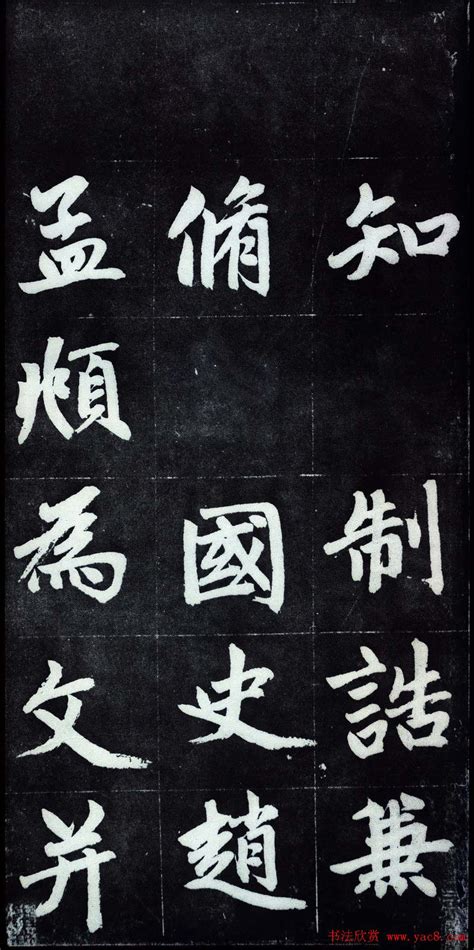 知制誥兼
脩國史趙
孟頫為文并
书法欣赏 www.yac8.com